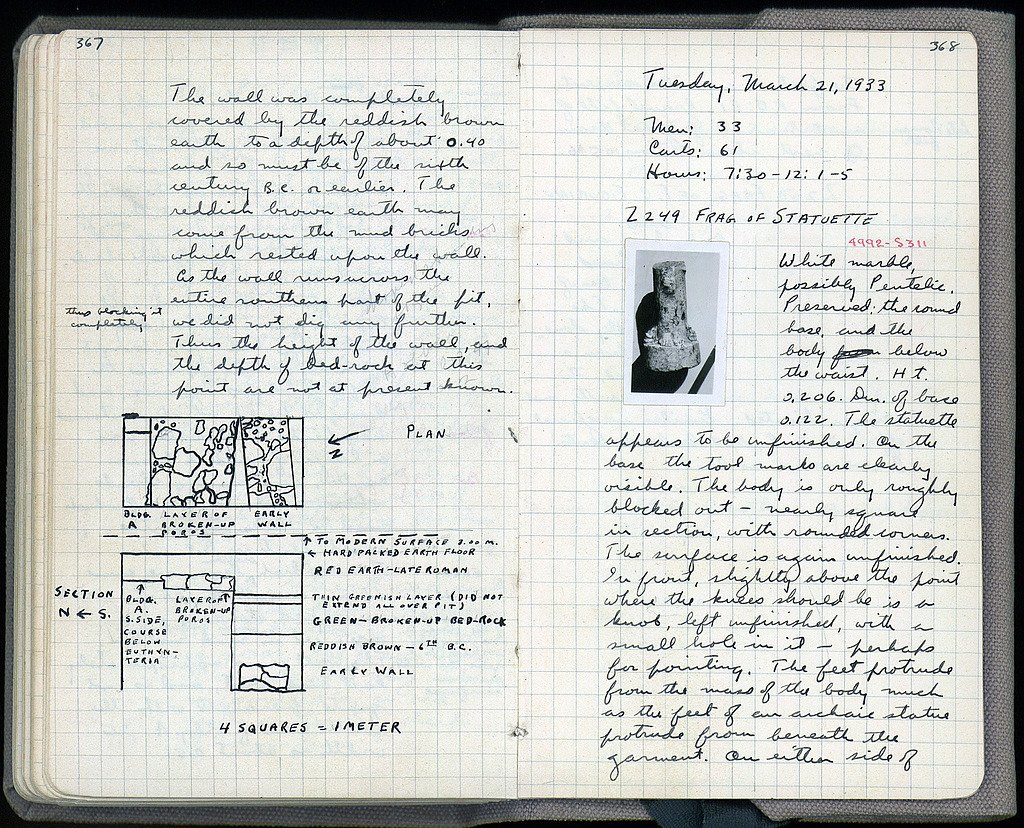 367
The wall was completely
covered by the reddish brown
earth to a depth of about 0.40
and so must be of the sixth
century B.C. or earlier. The
reddish brown earth may
come from the mud bricks
which rested upon the wall.
As the wall runs across the
entire southern part of the pit,
thus blocking it
completely
we did not dig any further.
Thus the height of the wall, and
the depth of bed-rock at this
point are not at present known.
PLAN
N
BLDG.
A
LAYER OF
BROKEN-UP
POROS
EARLY
WALL
TO MODERN SURFACE 2.00 M.
HARD PACKED EARTH FLOOR
RED EARTH-LATE ROMAN
SECTION
N ← S.
BLDG.
A.
S. SIDE,
COURSE
BELOW
EUTHYN-
TERIA
LAYER OF
BROKEN-UP
POROS
THIN GREENISH LAYER (DID NOT
EXTEND ALL OVER PIT)
GREEN-BROKEN-UP BED-ROCK
REDDISH BROWN - 6TH B.C.
EARLY WALL
4 SQUARES = 1 METER
368
Tuesday, March 21, 1933
Men: 33
Carts: 61
Hours: 7:30-12: 1-5
Z 249 FRAG OF STATUETTE
4992-S311
White marble,
possibly Pentelic.
Preserved: the round
base, and the
body below
the waist. Ht.
0.206. Dm. of base
0.122. The statuette
appears to be unfinished. On the
base the tool marks are clearly
visible. The body is only roughly
blocked out - nearly square
in section, with rounded corners.
The surface is again unfinished.
In front, slightly above the point
where the knees should be is a
knob, left unfinished, with a
small hole in it - perhaps
for pointing. The feet protrude
from the mass of the body much
as the feet of an archaic statue
protrude from beneath the
garment. On either side of